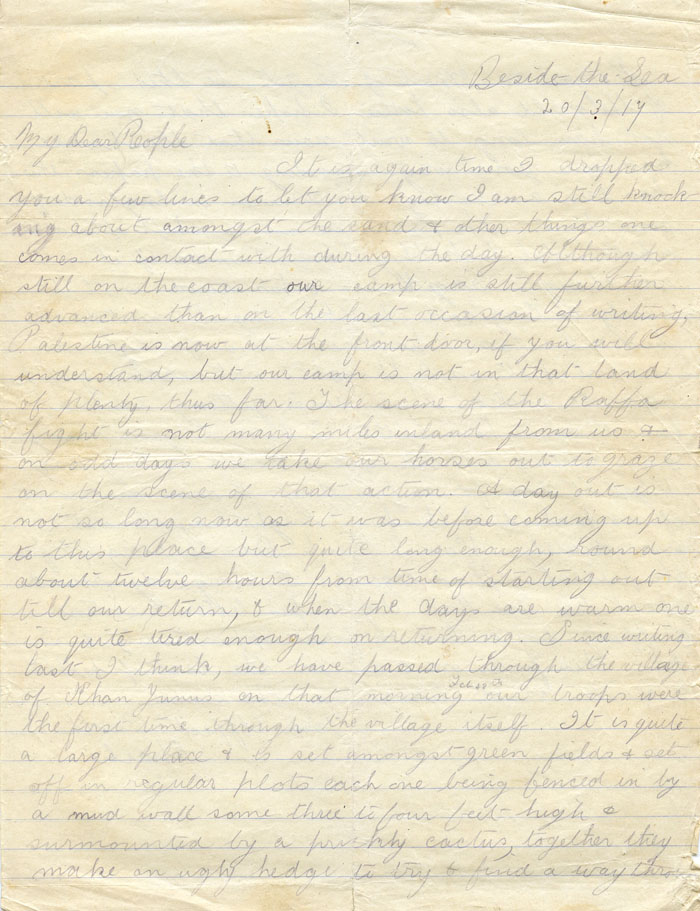 Beside the Sea
20/3/17
My Dear People
It is again time I dropped
you a few lines to let you know I am still knock
ing about amongst the sand & other things one
comes in contact with during the day. Although
still on the coast our camp is still further
advanced than on the last occasion of writing,
Palestine is now at the front door, if you will
understand, but our camp is not in that land
of plenty, thus far. The scene of the Raffa
fight is not many miles inland from us &
on odd days we take our horses out to graze
on the scene of that action. A day out is
not so long now as it was before coming up
to this place but quite long enough, round
about twelve hours from time of starting out
till our return, & when the days are warm one
is quite tired enough on returning. Since writing
last I think, we have passed through the village
of Khan Yunus on that morning our troops were
the first time through the village itself. It is quite
a large place & is set amongst green fields & set
off in regular plots each one being fenced in by
a mud wall some three to four feet high &
surmounted by a prickly cactus, together they
make an ugly hedge to try & find a way thro